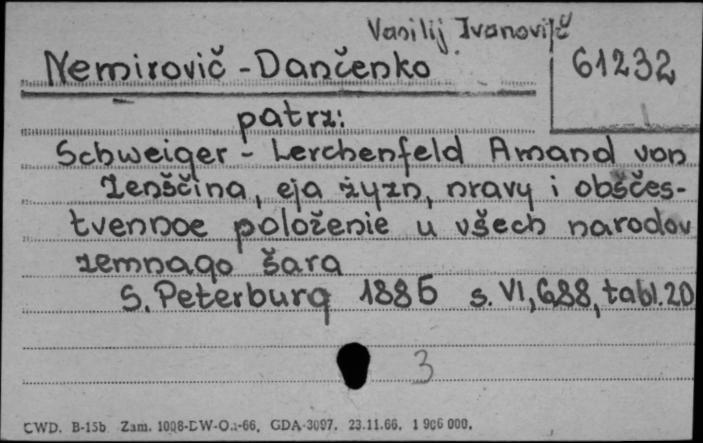 Vasilij Ivanovič
Nemirovič-Dančenko 61232
patrz:
Schweiger-Lerchenfeld Amand von
Ženščina, eja žyzn, nravy i obščes-
tvennoe položenie u všech narodov
zemnago šara
S. Peterburg 1885 s. VI, 688, tabl. 20
3
CWD. B-15b Zam. 1008-DW-Oa-66. GDA-3097. 23.11.66. 1 906 000.